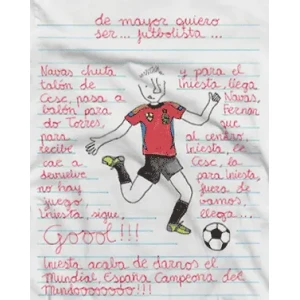 de mayor quiero
ser... futbolista...
Navas chuta y para el
talón de Iniesta, llega
Cesc, pasa a Navas,
balón para Fernan
do Torres, que
para al centro,
recibe Iniesta, ce
cae a Cesc, la
devuelve para Iniesta,
no hay fuera de
juego, vamos,
Iniesta sigue, llega...
Goool!!!
Iniesta acaba de darnos el
Mundial, España Campeona del
Mundooooooo!!!